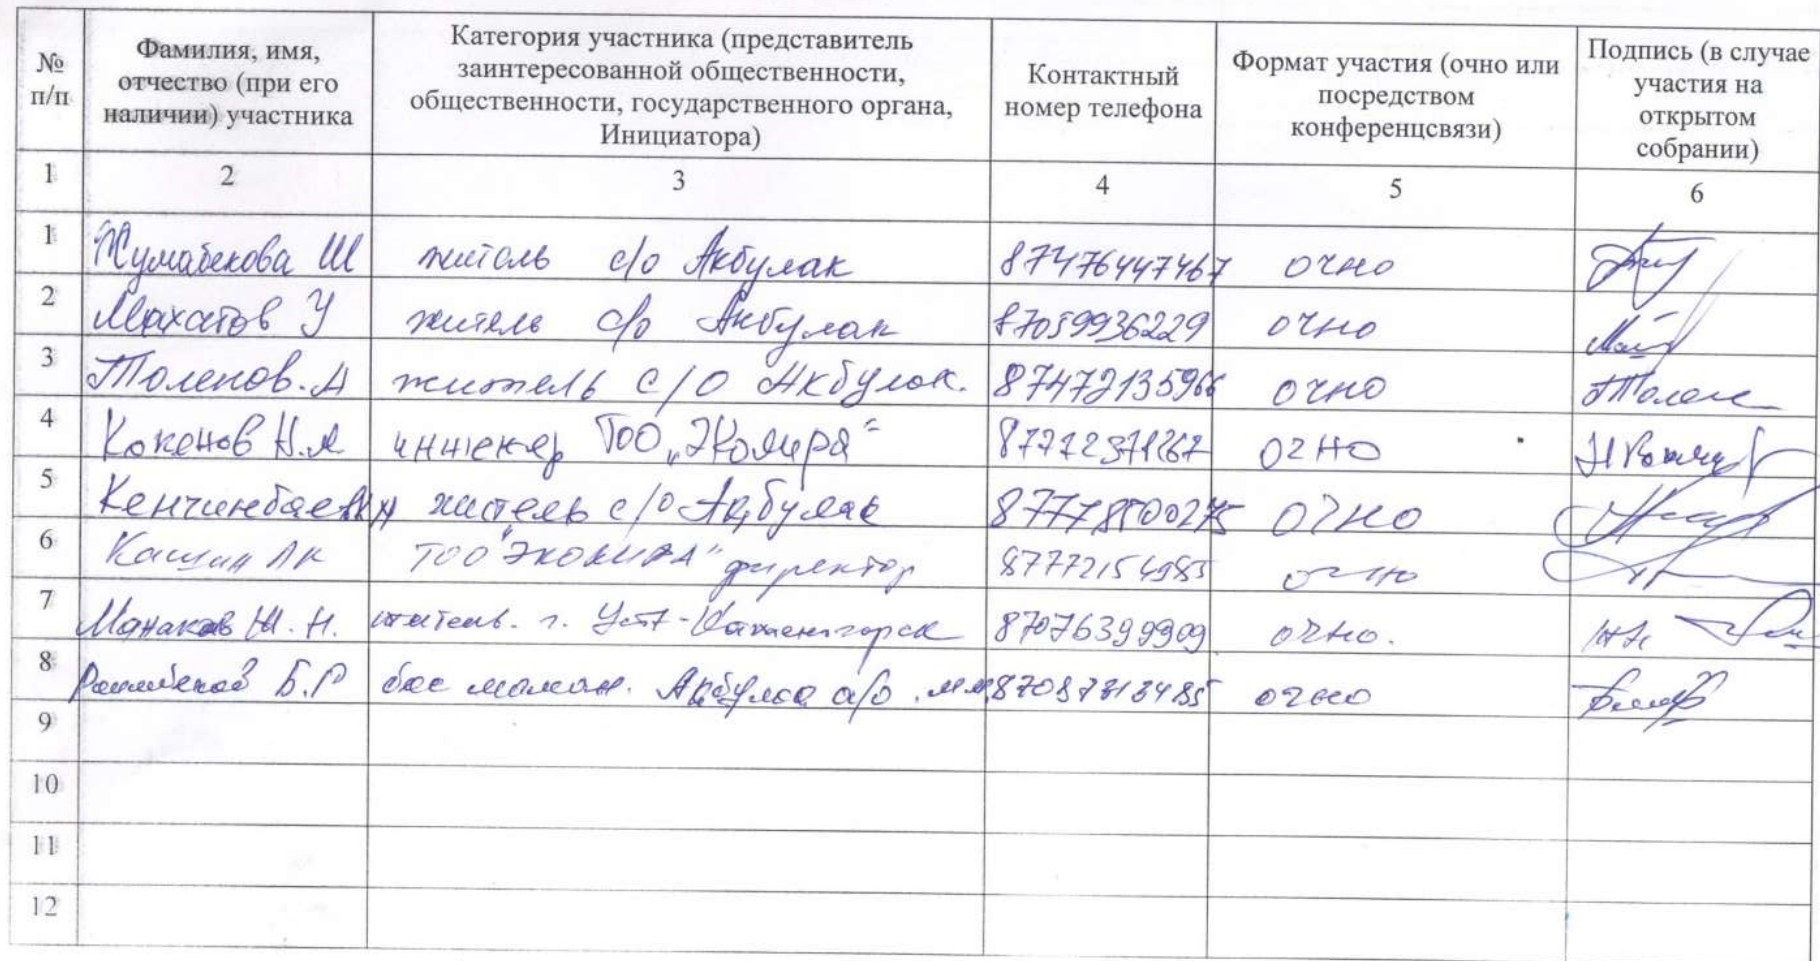 № п/п | Фамилия, имя, отчество (при его наличии) участника | Категория участника (представитель заинтересованной общественности, общественности, государственного органа, Инициатора) | Контактный номер телефона | Формат участия (очно или посредством конференцсвязи) | Подпись (в случае участия на открытом собрании)
1 | 2 | 3 | 4 | 5 | 6
1 | Жумабекова Ш | житель с/о Акбулак | 87476447467 | очно
2 | Махатов У | житель с/о Акбулак | 87059936229 | очно
3 | Толенов. А | житель с/о Акбулак. | 87472135966 | очно | Толен
4 | Кокенов Н.А | инженер ТОО „Экомира" | очно
5 | житель с/о Акбулак | очно
6 | Кашин | ТОО "ЭКОМИРА" директор | 87772154985 | очно
7 | Манаков Ш. Н. | житель. г. Уст-Каменегорск | 87076399909 | очно.
8 | Б.Р | бас маман. Акбулак а/о | очно
9
10
11
12